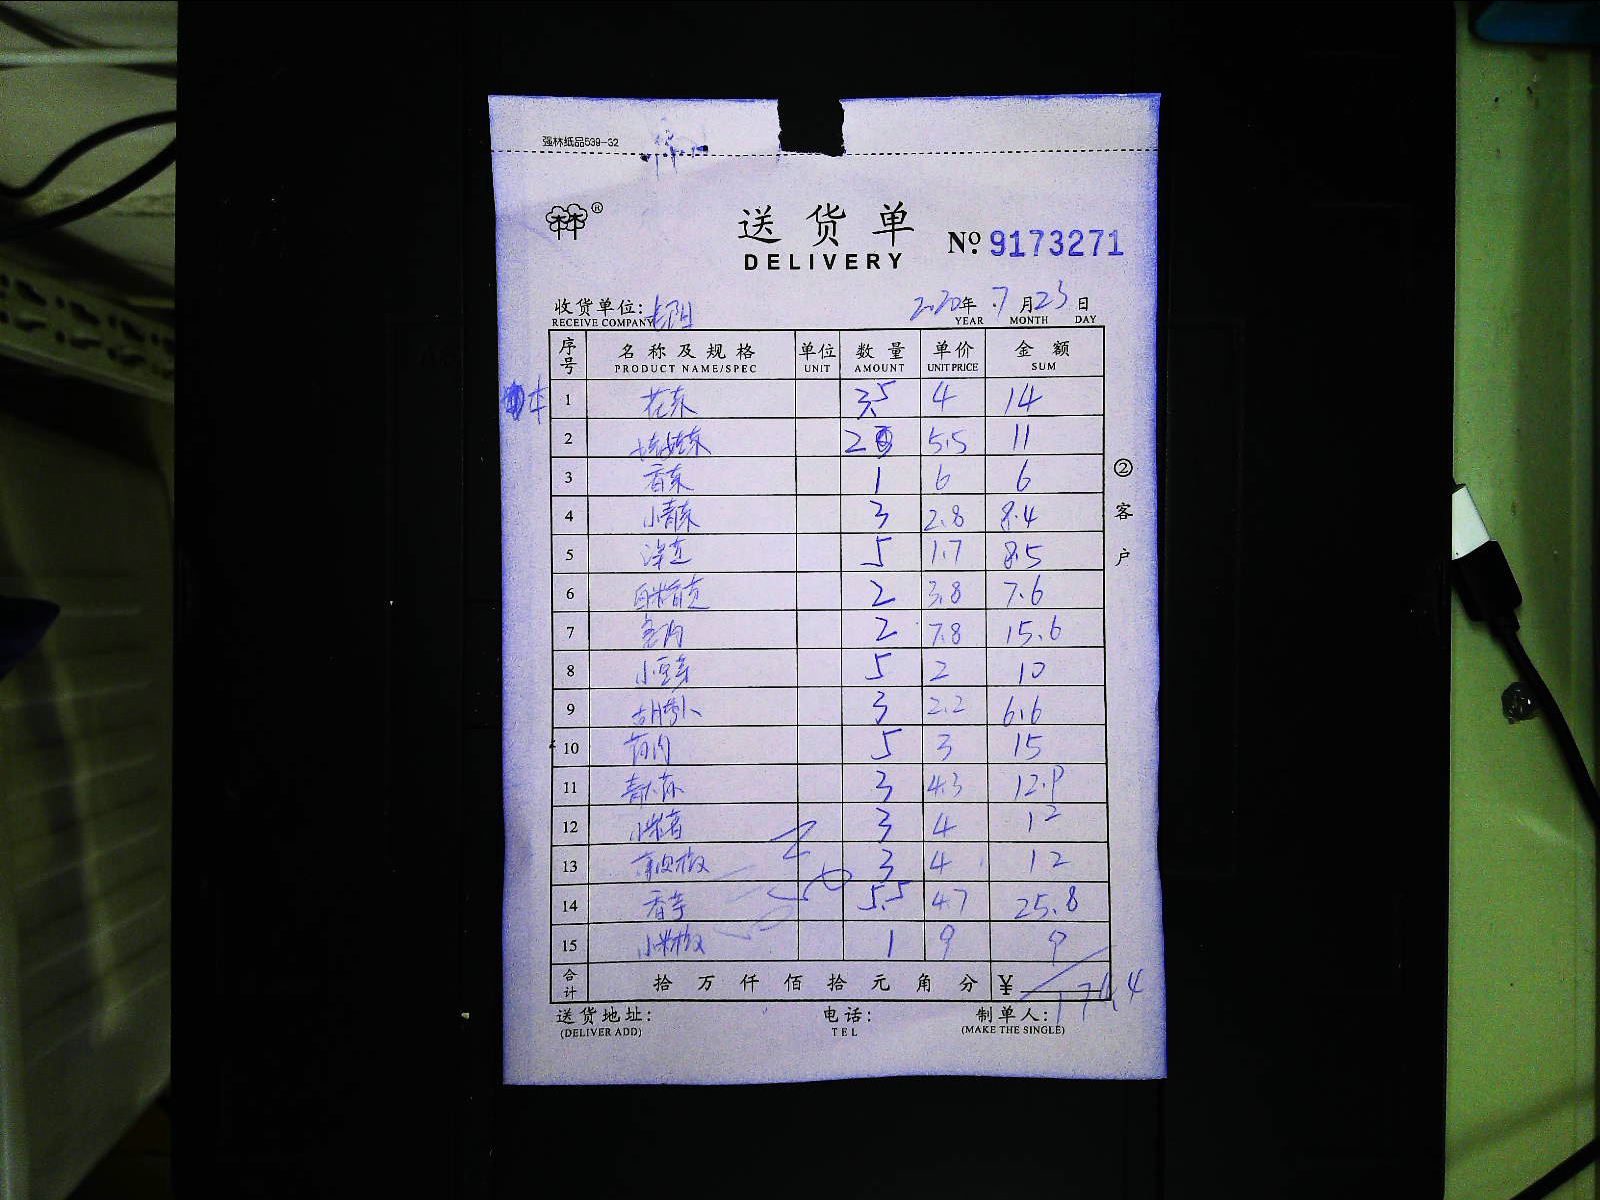 强林纸品539-32
送货单
DELIVERY
№ 9173271
收货单位:
RECEIVE COMPANY
2020年 7月23日
YEAR MONTH DAY
序号 名称及规格 单位 数量 单价 金额
PRODUCT NAME/SPEC UNIT AMOUNT UNIT PRICE SUM
1 花菜 3.5 4 14
2 2 5.5 11
3 香菜 1 6 6
4 小青菜 3 2.8 8.4
5 5 1.7 8.5
6 2 3.8 7.6
7 2 7.8 15.6
8 小豆芽 5 2 10
9 胡萝卜 3 2.2 6.6
10 5 3 15
11 3 4.3 12.9
12 3 4 12
13 3 4 12
14 香芋 5.5 4.7 25.8
15 小米椒 1 9 9
合计 拾万仟佰拾元角分 ¥ 174.4
送货地址: 电话: 制单人:
(DELIVER ADD) TEL (MAKE THE SINGLE)
②客户